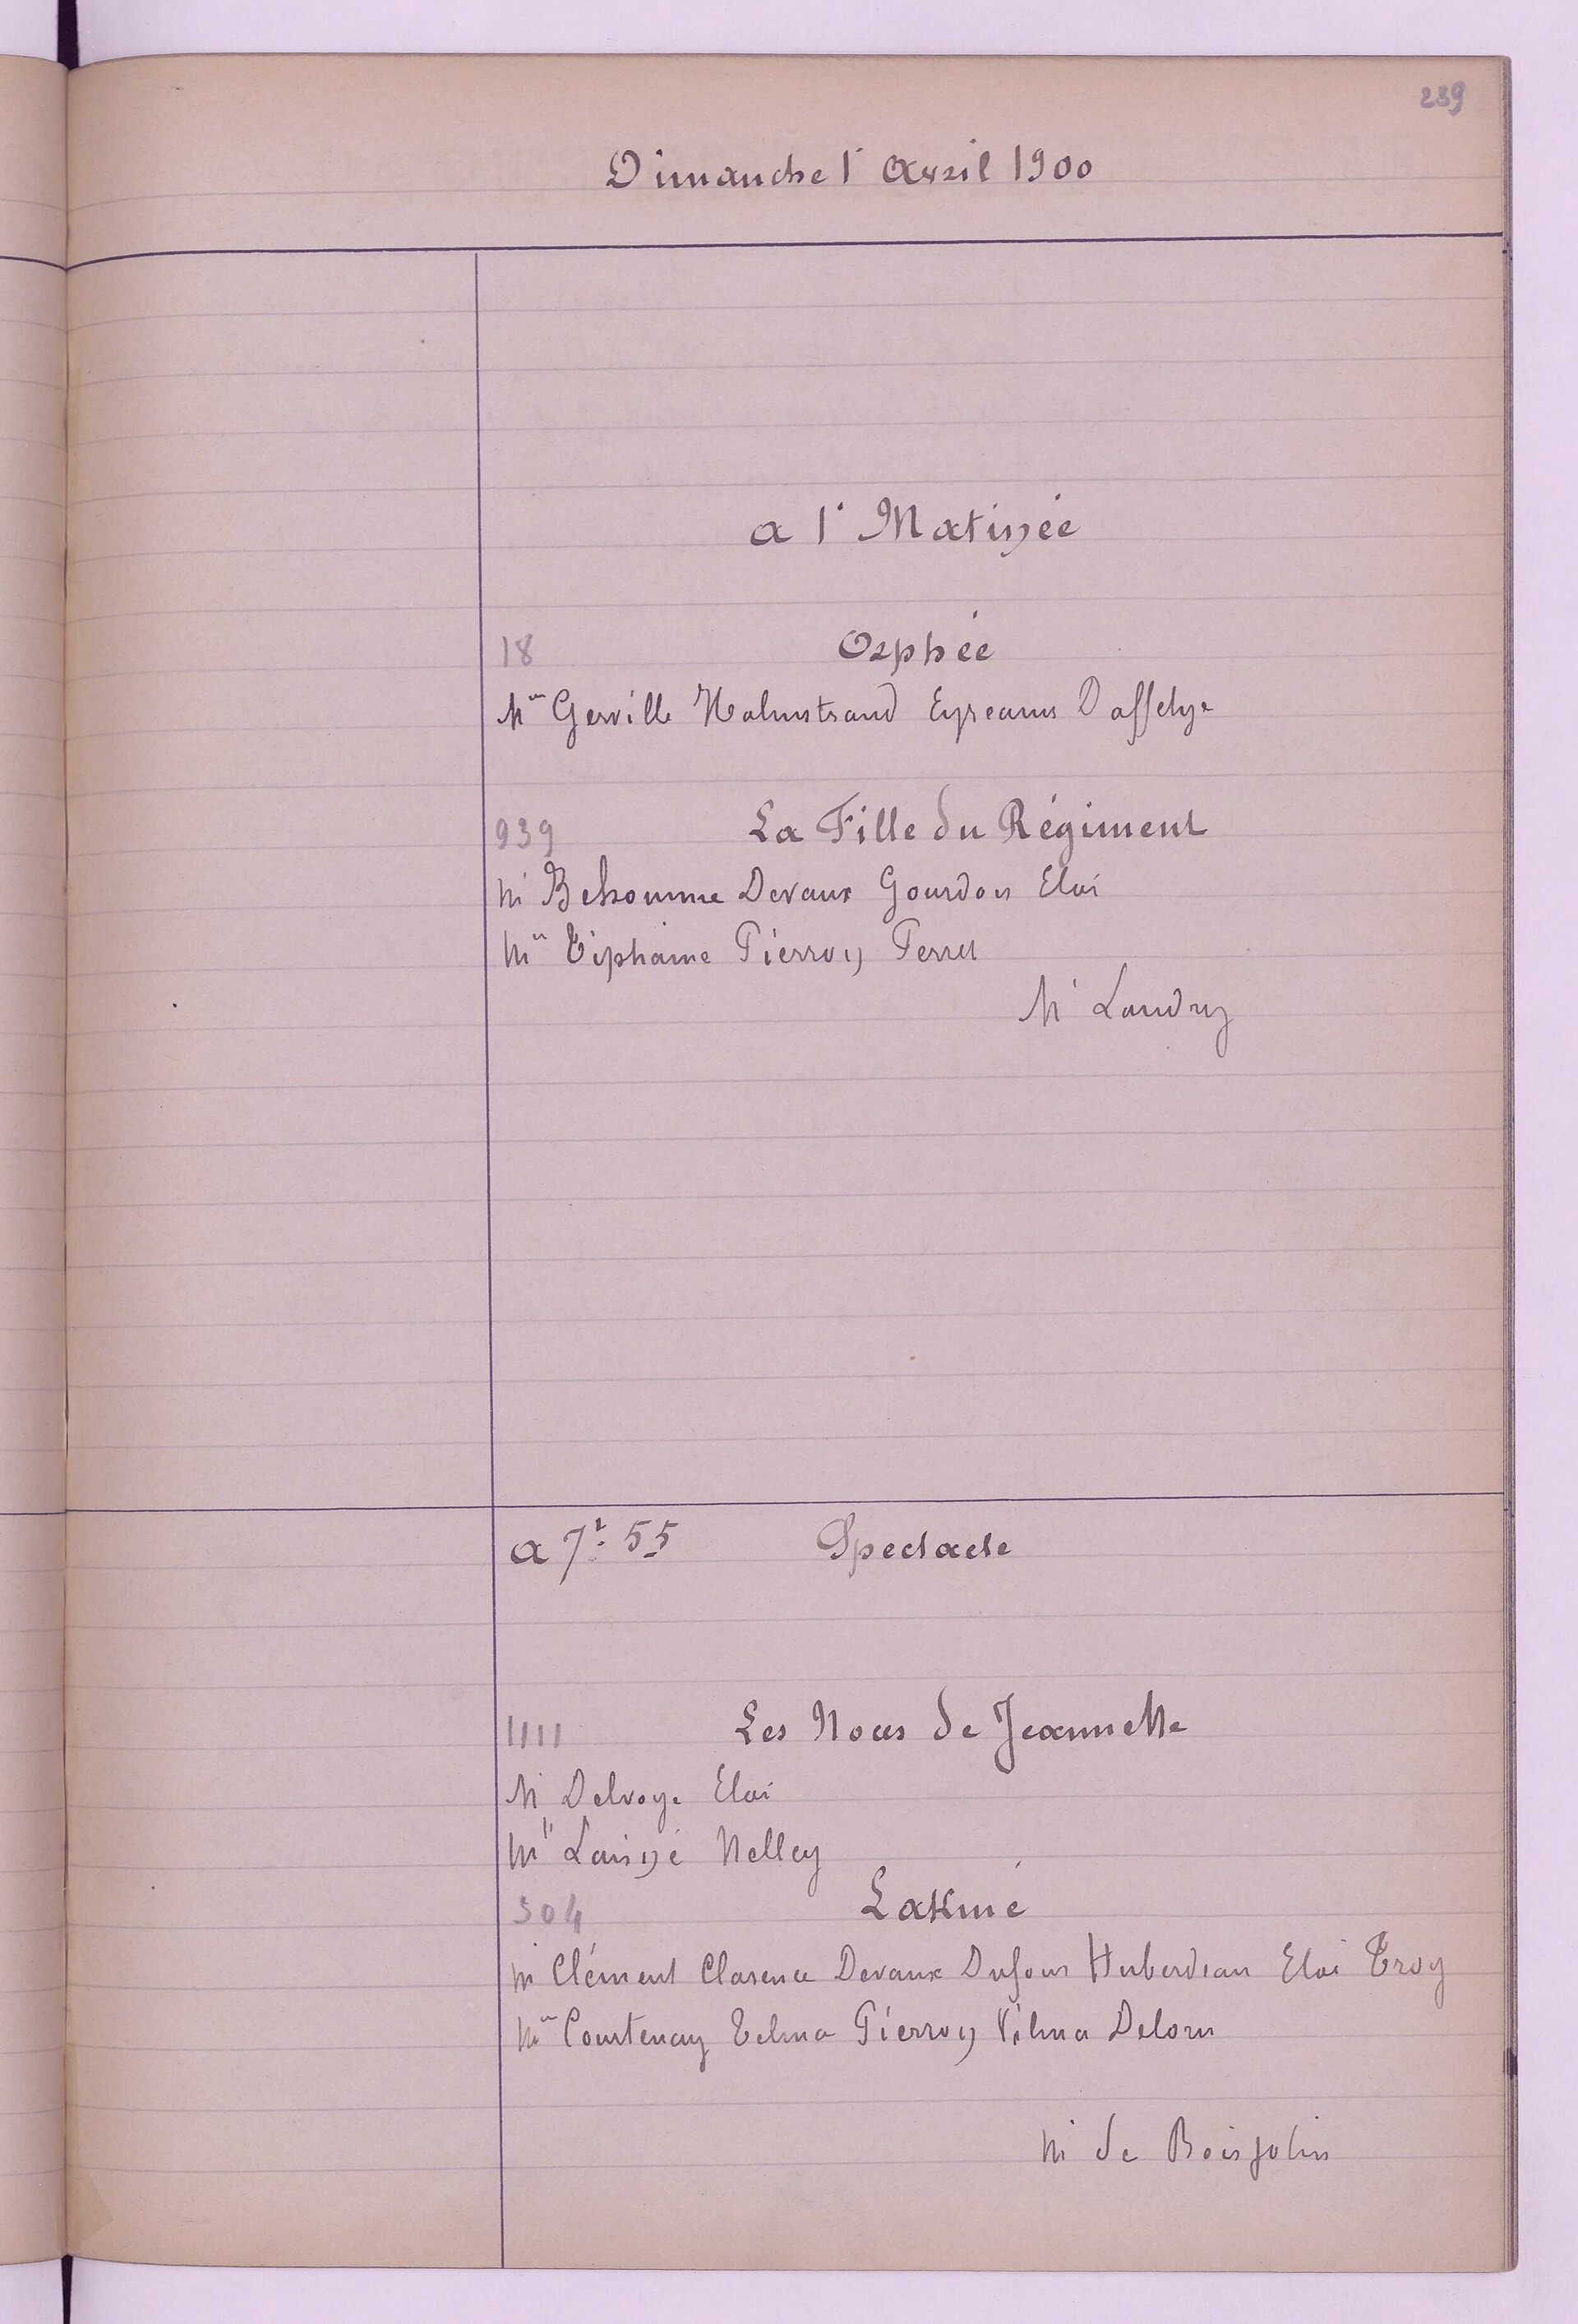 239
Dimanche 1r Avril 1900
a 1r Matinée
18 Orphée
Mmes Gerville Holmstrand Eyreams Daffetye
939 La Fille du Régiment
Mr Belhomme Devaux Gourdon Eloi
Mmes Tiphaine Pierron Perret
Mr Landry
a 7h. 55 Spectacle
1111 Les Noces de Jeannette
Mr Delvoye Eloi
Mlle Laisné Nelley
304 Lakmé
Mr Clément Clarence Devaux Dufour Huberdeau Eloi Troy
Mmes Courtenay Telma Pierron Vilma Delorn
Mr de Boisjolin